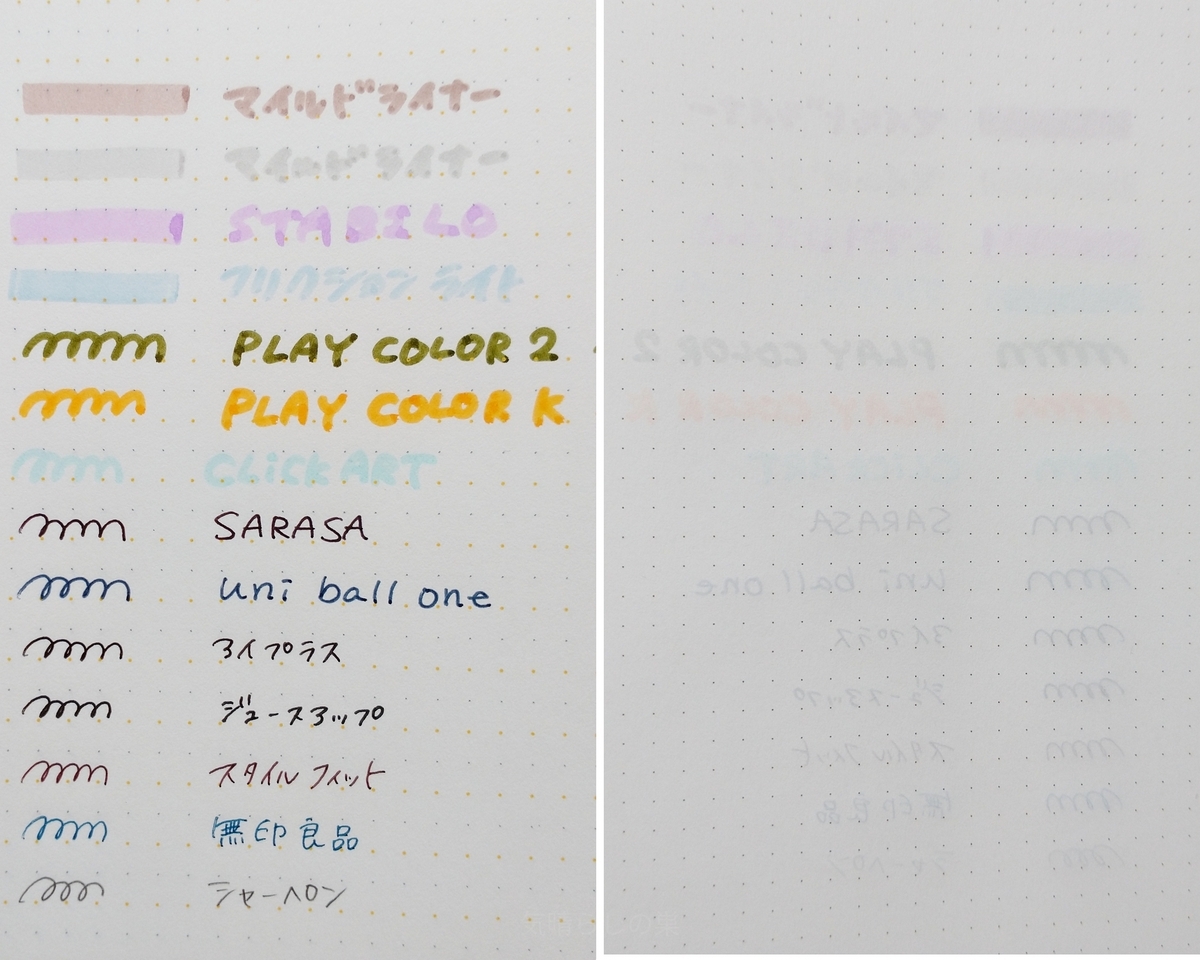 マイルドライナー
マイルドライナー
STABILO
フリクションライト
PLAY COLOR 2
PLAY COLOR K
CLiCK ART
SARASA
uni ball one
3イプラス
ジュース3ップ
スタイルフィット
無印良品
シャーペン